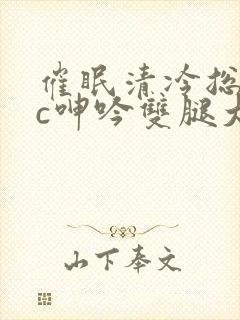 催眠清冷总
c呻吟雙腿大
山下奉文